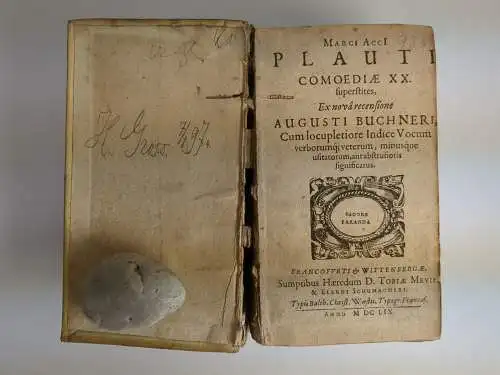 H. Gross. 7/8 97.
MARCI ACCI
PLAUTI
COMOEDIÆ XX.
superstites,
Ex novâ recensione
AUGUSTI BUCHNERI,
Cum locupletiore Indice Vocum
verborumq; veterum, minusque
usitatorum, aut abstrusioris
significatus.
LABORE
PARANDA
FRANCOFURTI & WITTENBERGÆ,
Sumptibus Hæredum D. TOBIÆ MEVII,
& ELERDI SCHUMACHERI,
Typis Balth. Christ. Wustii, Typogr. Francof.
ANNO M DC LIX.